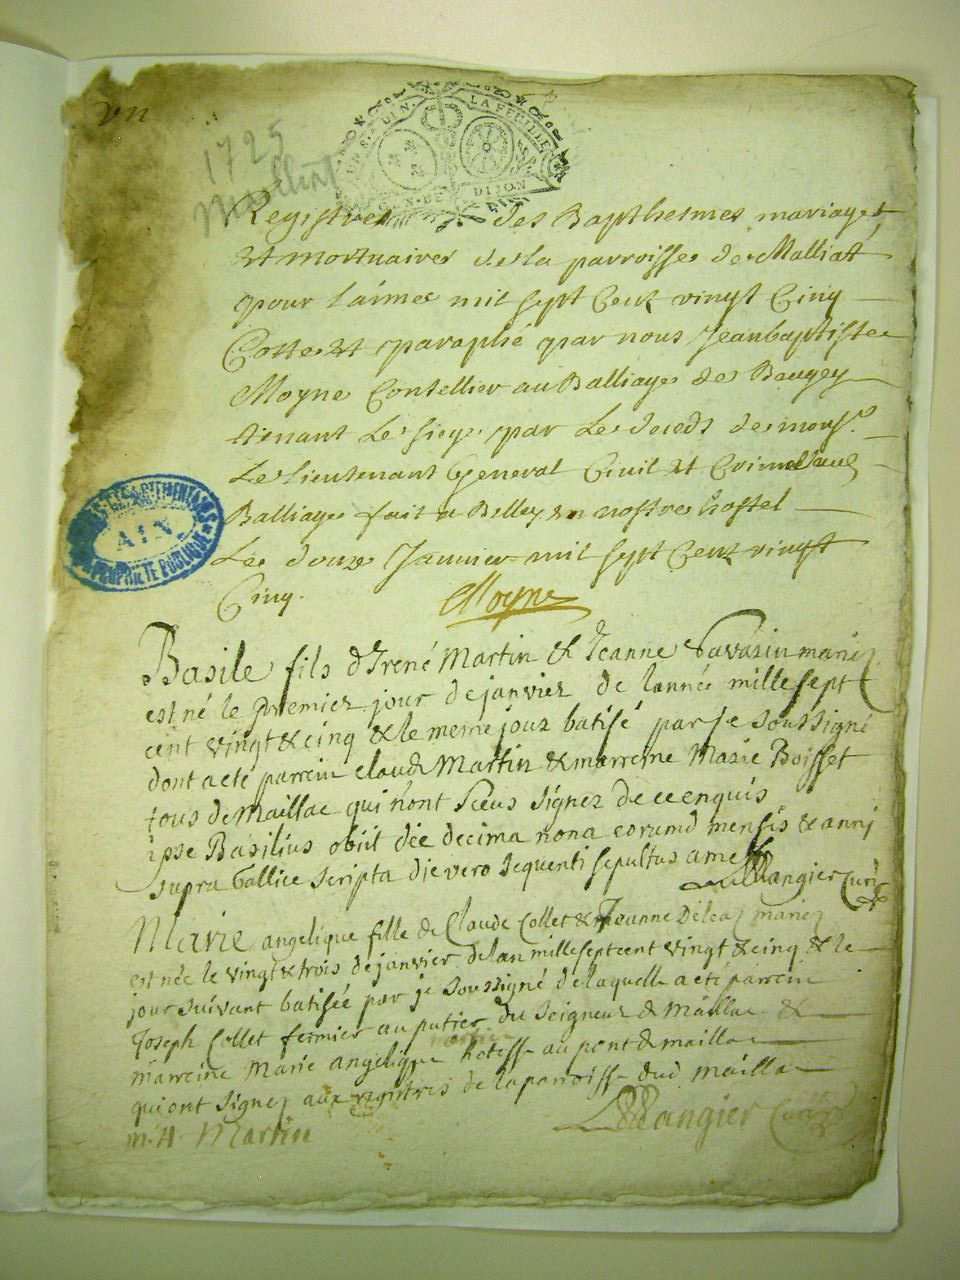 vn
1725
LA FEUILLE
GEN. DE DIJON
Registre des Bapthesmes mariages
Et mortuaires de la parroisse de Malliat
pour lannee mil sept Cent vingt Cinq
Cotte et paraphé par nous Jean baptiste
Moyne Conseillier au Balliage de Baugey
tenant Le siege par Le deceds de monsr.
Le Lieutenant General Civil et Criminel aud
Balliage fait a Belley en nostre hostel
Le douze Janvier mil sept Cent vingt
Cinq. Moyne
ARCHIVES DEPARTEMENTALES
AIN
PROPRIETE PUBLIQUE
Basile fils d'Irené Martin & Jeanne Savarin mariez
est né le premier jour de janvier de lannée mille sept
cent vingt & cinq & le meme jour batisé par je soussigné
dont a eté parrein claude Martin & marreine Marie Boisset
tous de Maillac qui n'ont sceus signer de ce enquis
ipse Basilius obiit die decima nona eorumd mensis & anni
supra Gallice scripta die vero sequenti sepultus
Mangier Curé
Marie angelique fille de Claude Collet & Jeanne mariez
est née le vingt & trois de janvier de lan mille sept cent vingt & cinq & le
jour suivant batisée par je soussigné de laquelle a eté parrein
Joseph Collet fermier au du Seigneur de Maillac &
marreine Marie angelique hotesse au pont de maillac
qui ont signez aux registres de la parroisse dud maillac
m. A. Martin Mangier Curé